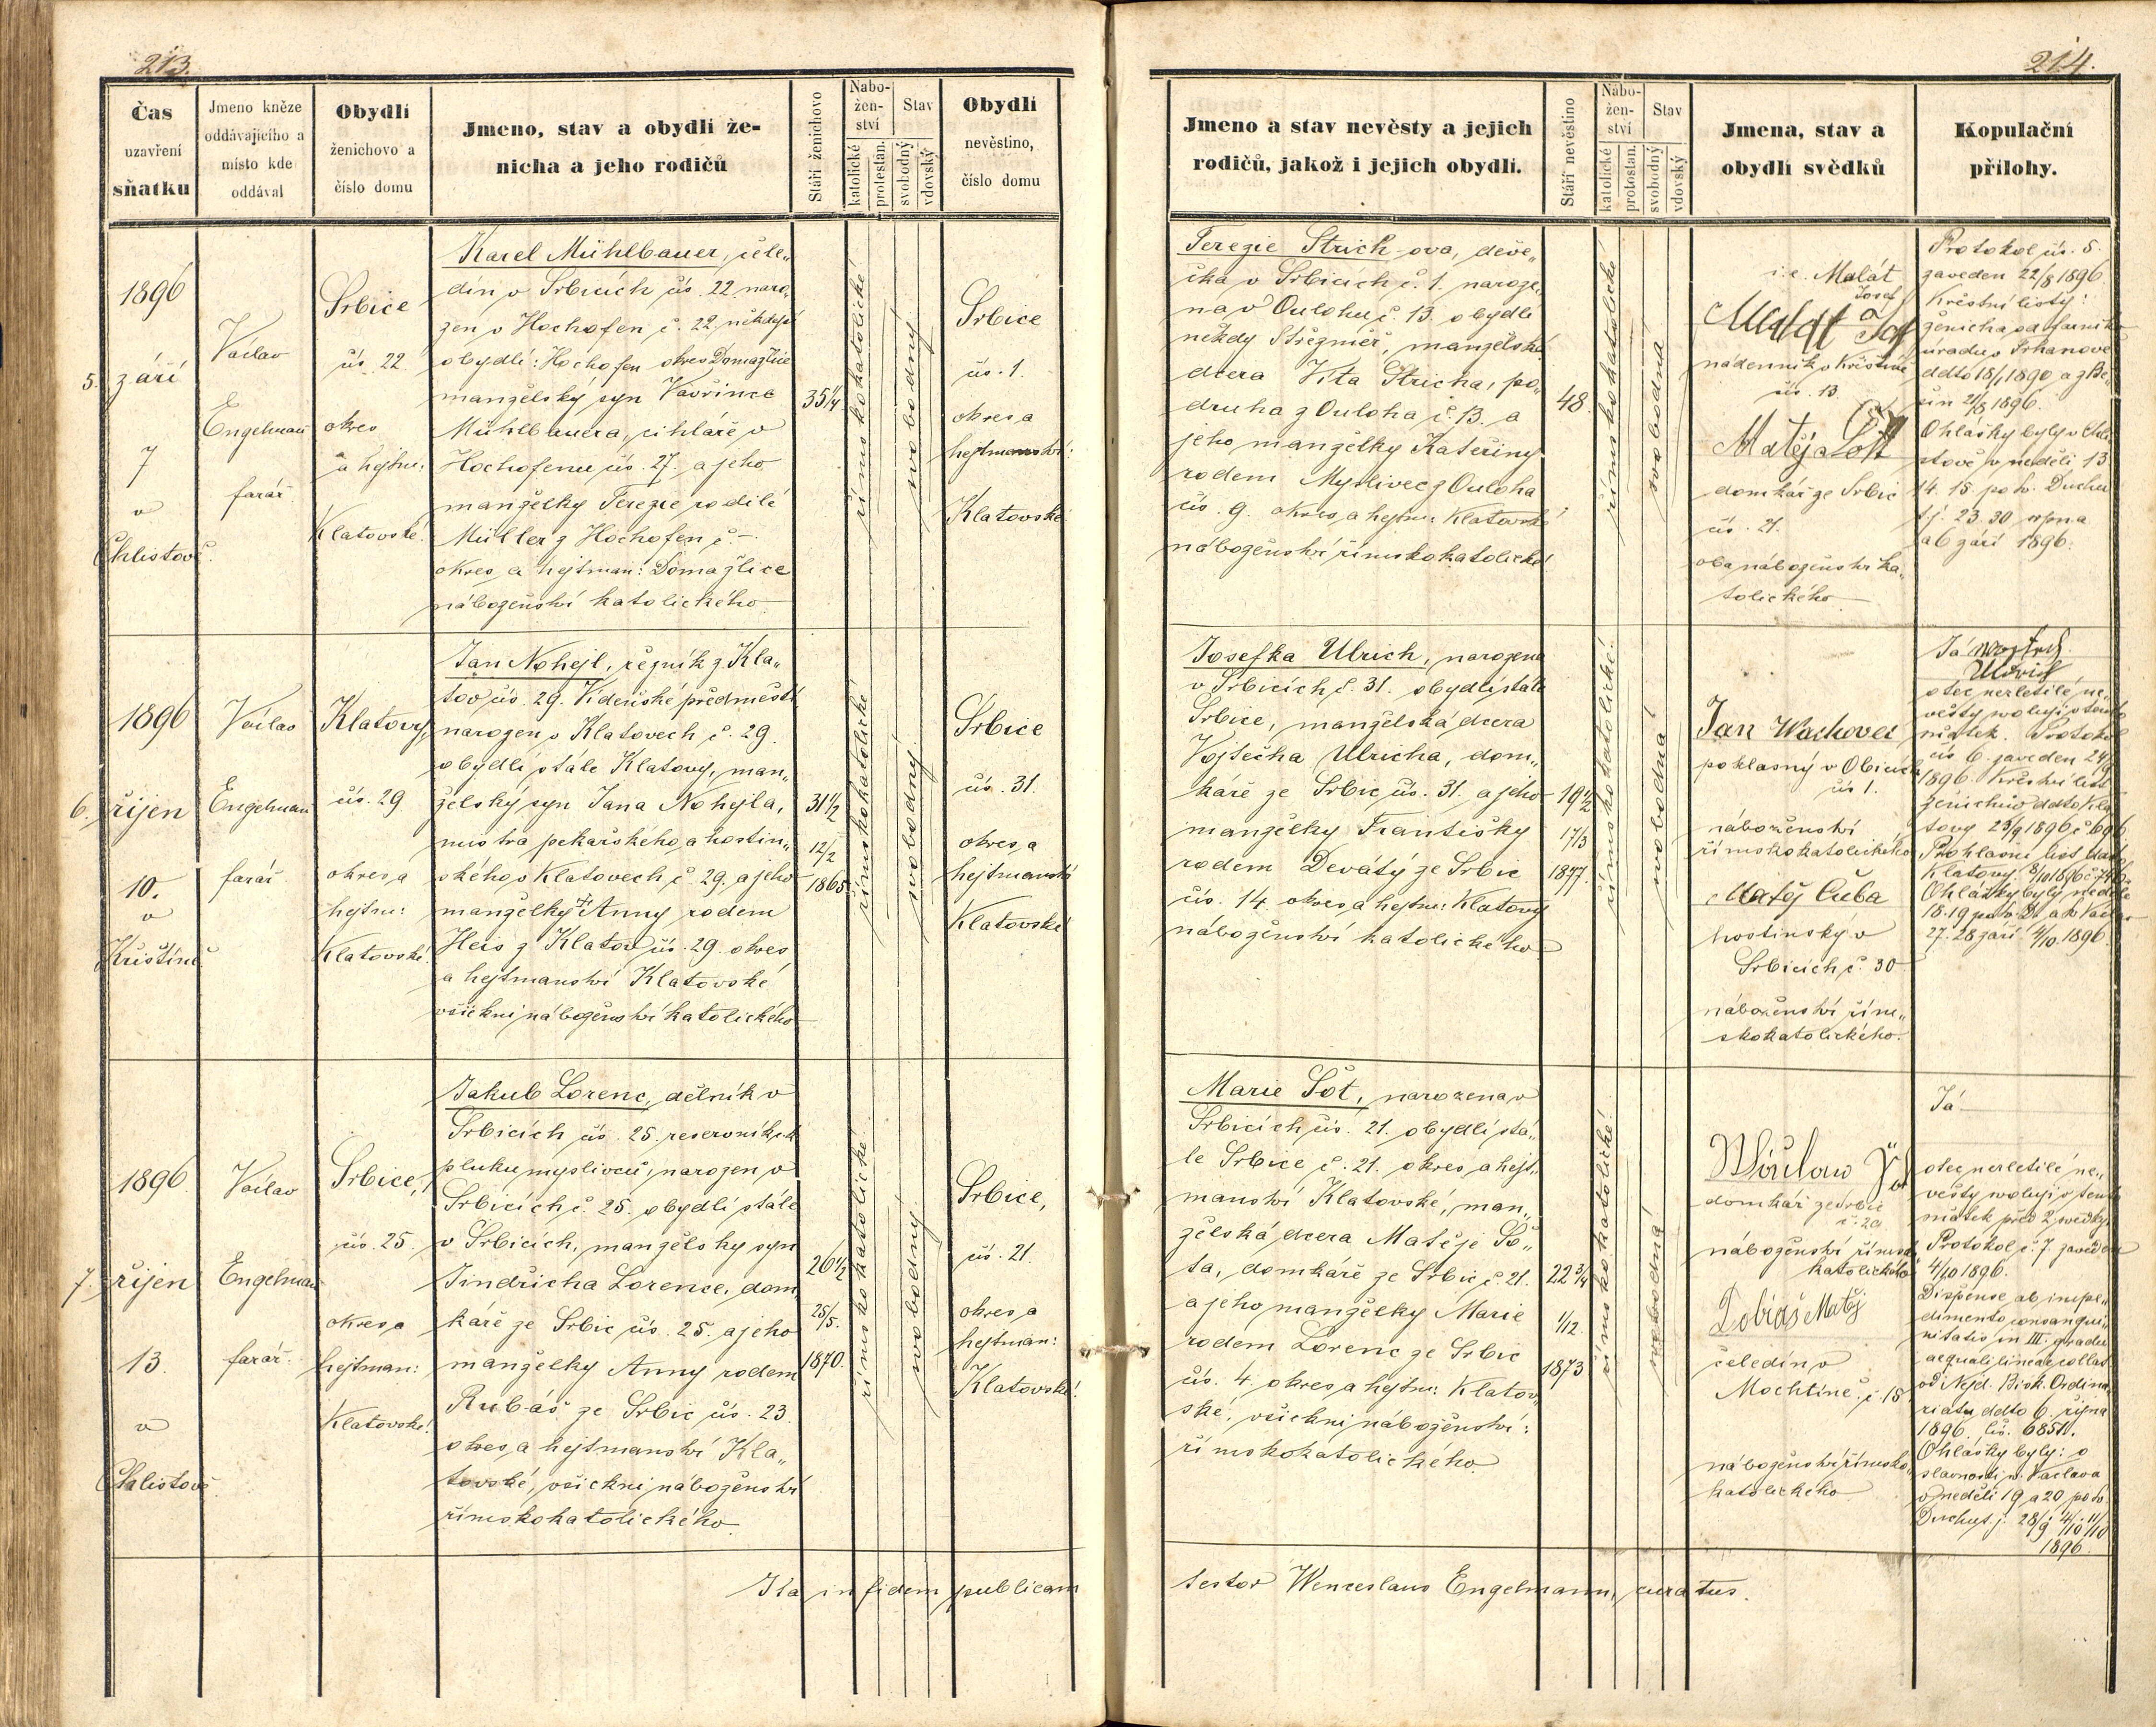 213.
Čas
uzavření
sňatku
Jmeno kněze
oddávajícího a
místo kde
oddával
Obydlí
ženichovo a
číslo domu
Jmeno, stav a obydlí že-
nicha a jeho rodičů
Stáří ženichovo
Nábo-
žen-
ství
katolické
protestan.
Stav
svobodný
vdovský
Obydlí
nevěstino,
číslo domu
5.
1896
září
7
v
Chlistově.
Václav
Engelman
farář
Srbice
čís. 22
okres
a hejtm:
Klatovské.
Karel Mühlbauer, čele„
dín v Srbicích čís. 22. naro„
zen v Hochofen č. 22, někdejší
obydlí: Hochofen okres Domažlice
manželský syn Vavřince
Mühlbauera, cihláře v
Hochofenu čís. 27. a jeho
manželky Terezie rodilé
Müller z Hochofen č. –
okres a hejtman: Domažlice
náboženství katolického
35 1/4
římskokatolické
svobodný
Srbice
čís. 1.
okres a
hejtmanství:
Klatovské
6.
1896
říjen
10.
v
Křištíně
Václav
Engelman
farář
Klatovy,
čís. 29
okres a
hejtm:
Klatovské.
Jan Nohejl, řezník z Kla„
tov čís. 29. Vídeňské předměstí
narozen v Klatovech č. 29.
obydlí stále Klatovy, man„
želský syn Jana Nohejla,
mistra pekařského a hostin„
ského v Klatovech č. 29. a jeho
manželky Anny rodem
Heis z Klatov čís. 29. okres
a hejtmanství Klatovské
všickni náboženství katolického
31 1/2
12/2
1865
římskokatolické
svobodný
Srbice
čís. 31.
okres a
hejtmanství
Klatovské
7.
1896
říjen
13.
v
Chlistově
Václav
Engelman
farář.
Srbice,
čís. 25.
okres a
hejtman:
Klatovské.
Jakub Lorenc, dělník v
Srbicích čís. 25. reservník
pluku myslivců, narozen v
Srbicích č. 25. obydlí stále
v Srbicích, manželský syn
Jindřicha Lorence, dom„
káře ze Srbic čís. 25. a jeho
manželky Anny rodem
Rubáš ze Srbic čís. 23.
okres a hejtmanství Kla„
tovské, všickni náboženství
římskokatolického.
26 1/2
25/5.
1870.
římskokatolické
svobodný
Srbice,
čís. 21.
okres a
hejtman:
Klatovské.
Ita in fidem publicam
214.
Jmeno a stav nevěsty a jejich
rodičů, jakož i jejich obydlí.
Stáří nevěstino
Nábo-
žen-
ství
katolické
protestan.
Stav
svobodný
vdovský
Jmena, stav a
obydlí svědků
Kopulační
přílohy.
Terezie Strich-ova, děve„
čka v Srbicích č. 1. naroze„
na v Oulohu č. 13. obydlí
někdy Střezměř, manželská
dcera Víta Stricha, po„
druha z Ouloha č. 13. a
jeho manželky Kateřiny
rodem Myslivec z Ouloha
čís. 9. okres a hejtm: Klatovské
náboženství římskokatolické
48.
římskokatolické
svobodná
i.e. Malát
Josef
nadenník v Křištíně
čís. 13.
Matěj Šott
domkář ze Srbic
čís. 21.
oba náboženství ka„
tolického
Protokol čís. 5.
zaveden 22/8 1896
Křestní listy:
ženicha od farního
úradu v Trhanově
ddto 18/1 1890 a z Be„
šin 21/8 1896.
Ohlášky byly v Chli
stově v neděli 13
14. 15. po sv. Duchu
tj. 23. 30 srpna
a 6 září 1896.
Josefka Ulrich, narozena
v Srbicích č. 31. obydlí stále
Srbice, manželská dcera
Vojtěcha Ulricha, dom„
káře ze Srbic čís. 31. a jeho
manželky Františky
rodem Devátý ze Srbic
čís. 14. okres a hejtm: Klatovy
náboženství katolického
19 1/2
17/3
1877.
římskokatolické.
svobodná
Jan Wachovec
poklasný v Obicích
čís 1.
náboženství
římskokatolického
Matěj Cuba
hostinský v
Srbicích č. 30
náboženství řím„
skokatolického.
Já
Ulrich
otec nezletilé ne„
věsty svoluji v tento
sňatek. Protokol
čís 6. zaveden 24/9
1896. Křestní list
ženichův ddto Kla
tovy 23/9 1896 č 696
Prohlašní list ddto
Klatovy
Ohlášky byly neděle
18. 19 po sv. D. a sv Vacla
27. 28 září 4/10. 1896.
Marie Šot, narozena v
Srbicích čís. 21. obydlí stá„
le Srbice č. 21. okres a hejt„
manství Klatovské, man„
želská dcera Matěje Šo„
ta, domkáře ze Srbic č. 21.
a jeho manželky Marie
rodem Lorenc ze Srbic
čís. 4. okres a hejtm: Klatov„
ské, všickni náboženství:
římskokatolického.
22 3/4
1/12.
1873
římskokatolické
svobodná
domkář ze Srbic
náboženství římsko
katolického
Tobiáš Matěj
čeledín v
Mochtíně. č. 18
náboženství římsko„
katolického
Já
otec nezletilé ne„
věsty svoluji v tento
sňatek před 2 svědky.
Protokol č. 7. zaveden
4/10 1896.
Dispense ab impe„
dimento consangui„
nitatis in III. gradu
aequali lineae collat
od Nejd. Bisk. Ordina„
riatu ddto 6. října
1896. čís. 6851.
Ohlášky byly: o
slavnosti sv. Václava
v neděli 19 a 20 po sv.
Duchu t. j. 28/9 4/10 11/10
1896
testor Wenceslaus Engelmann, curatus.